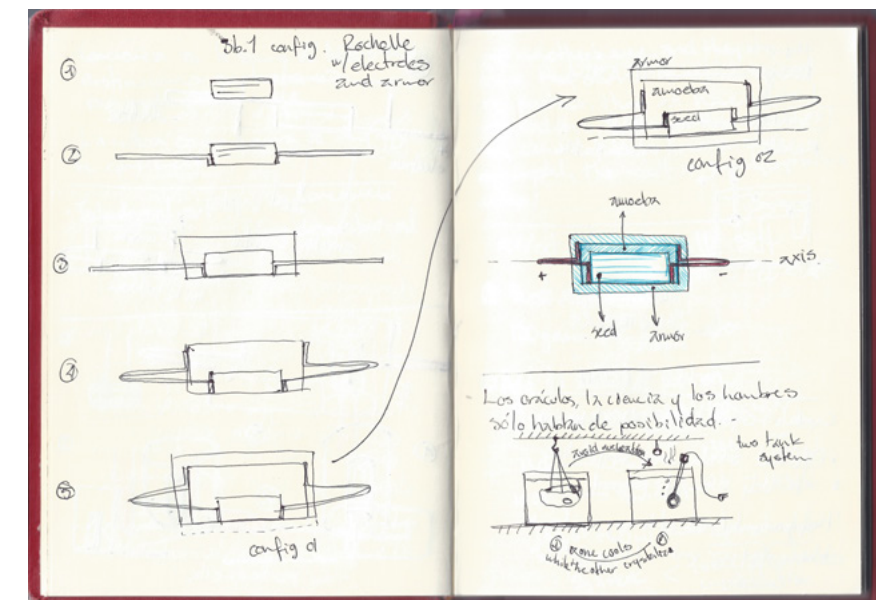 3b.1 config. Rochelle
w/electrodes
and armor
1
2
3
4
5
config 01
armor
amoeba
seed
config 02
amoeba
axis.
+
-
seed
armor
Los oráculos, la ciencia y los hombres
sólo hablan de posibilidad. -
two tank
system
avoid nucleation
one cools
while the other crystallizes